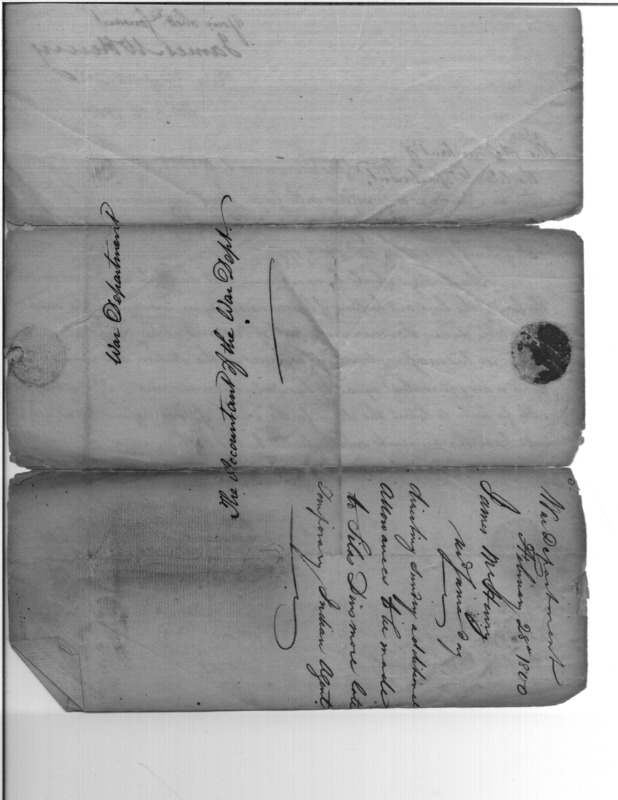 War Department
The Accountant of the War Dept.
War Department
February 28th 1800
James McHenry
rec'd same day
directing sundry additional
Allowances to be made
to Silas Dinsmore late
Temporary Indian Agent
James McHenry